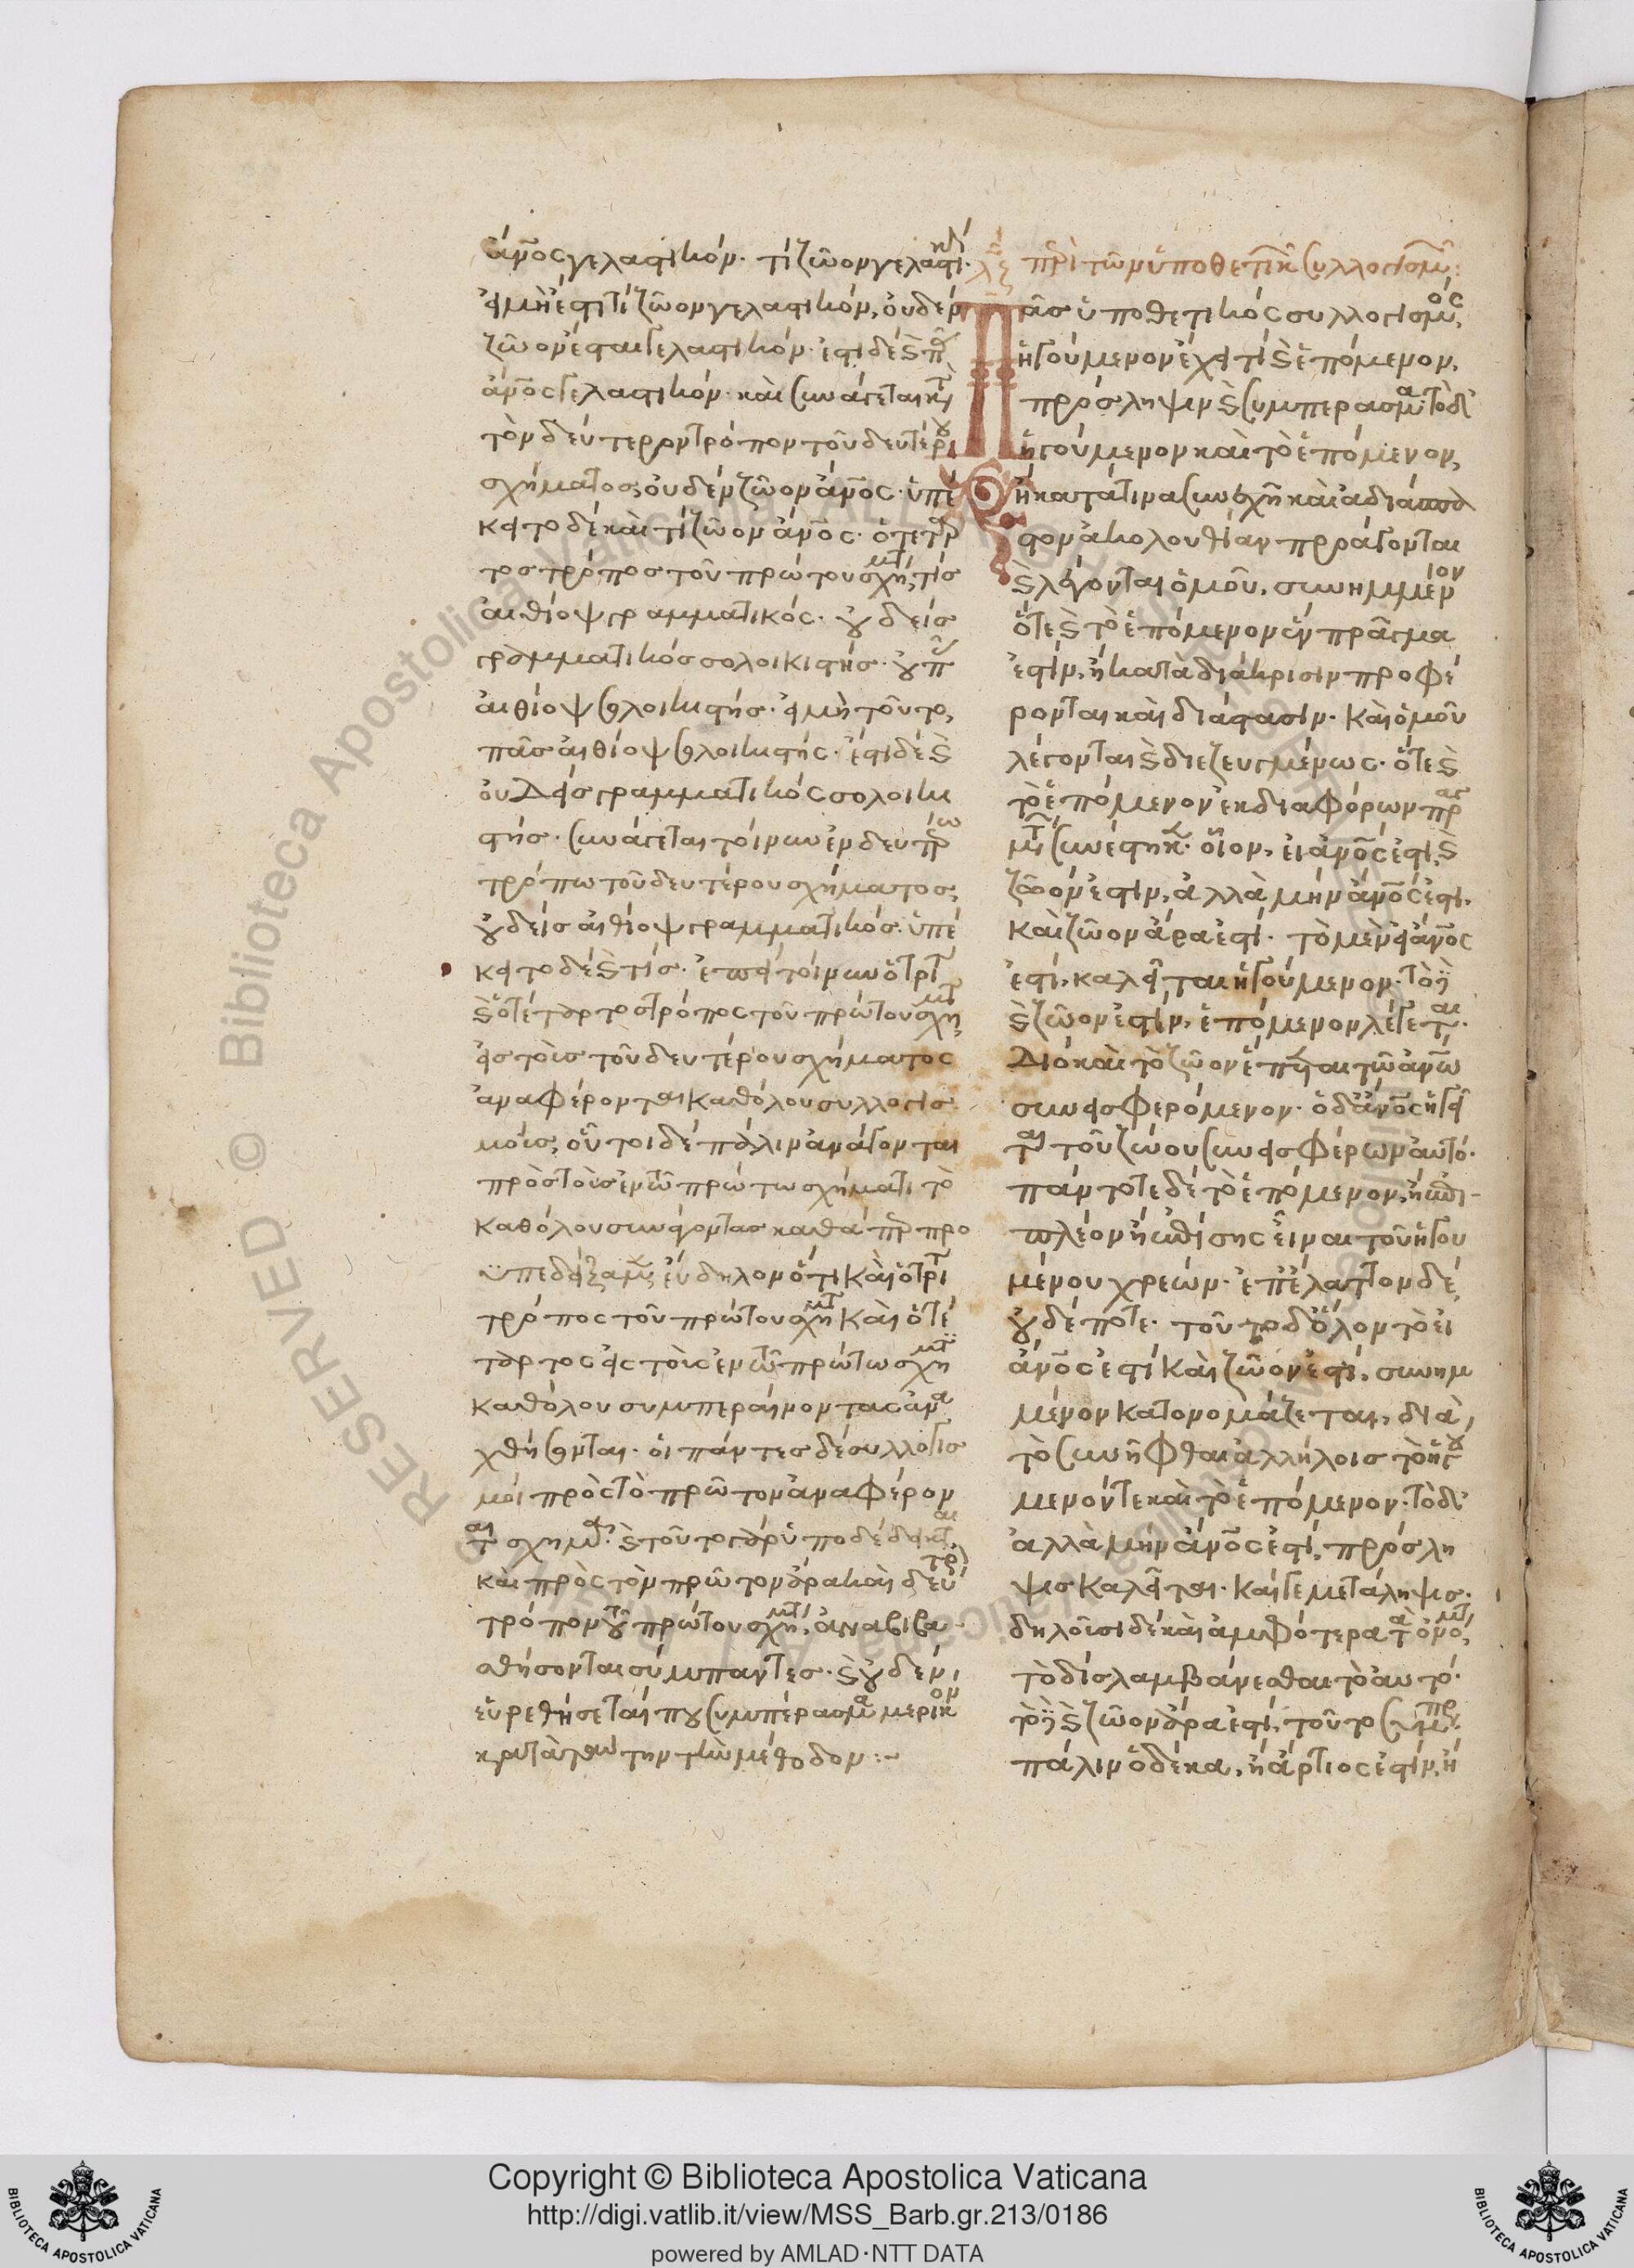 ἄν̅ο̅ς γελαστικόν· τὶ ζῶον γελαστι
εἰ μὴ ἔστι τὶ ζῶον γελαστικόν, οὐδὲν
ζῶον ἔσται γελαστικόν· ἔστι δὲ καὶ π
ἄν̅ο̅ς γελαστικόν· καὶ συνάγεται κτ
τὸν δεύτερον τρόπον τοῦ δευτέρου
σχήματος, οὐδὲν ζῶον ἄν̅ο̅ς· ὑπέ
κειτο δὲ καὶ τὶ ζῶον ἄν̅ο̅ς· ὁ τέταρ
τος τρόπος τοῦ πρώτου σχή, τὶς
αἰθίοψ γραμματικός· οὐδεὶς
γραμματικὸς σολοικιστής· οὐ π
αἰθίοψ σολοικιστής· εἰ μὴ τοῦτο,
πᾶς αἰθίοψ σολοικιστής· ἔστι δὲ καὶ
οὐδεὶς γραμματικὸς σολοικι
στής· συνάγεται τοίνυν ἐν δευτρω
τρόπω τοῦ δευτέρου σχήματος,
οὐδεὶς αἰθίοψ γραμματικός· ὑπέ
κειτο δὲ καὶ τίς· ἐπεὶ τοίνυν ὁ τρίτ
καὶ ὁ τέταρτος τρόπος τοῦ πρώτου σχη
εἰς τοὺς τοῦ δευτέρου σχήματος
ἀναφέρονται καθόλου συλλογισ
μούς, οὗτοι δὲ πάλιν ἀνάγονται
πρὸς τοὺς ἐν τῶ πρώτω σχήματι τὸ
καθόλου συνάγοντας καθάπερ προ
ϋπεδείξαμ, εὔδηλον ὅτι καὶ ὁ τρίτ
τρόπος τοῦ πρώτου σχη καὶ ὁ τέ
ταρτος εἰς τοὺς ἐν τῶ πρώτω σχη
καθόλου συμπεραίνοντας ἀνα
χθήσονται· οἱ πάντες δὲ συλλογισ
μοὶ πρὸς τὸ πρῶτον ἀναφέρον
ται σχημα· καὶ τοῦτο γὰρ ὑποδέδεικται
καὶ πρὸς τὸν πρῶτον ἄρα καὶ δευτρ
τρόπον τοῦ πρώτου σχη, ἀναβιβα
σθήσονται σύμπαντες· καὶ οὐδὲν
εὑρεθήσεταί που συμπέρασμα μερικον
κατὰ ταύτην τὴν μέθοδον:~
λς περὶ τῶν ὑποθετικ συλλογισμ:
Πᾶς ὑποθετικὸς συλλογισμος,
ἡγούμενον ἔχει τὶ καὶ ἑπόμενον,
πρόσληψιν καὶ συμπερασμα· τὸ δ
ἡγούμενον καὶ τὸ ἑπόμενον,
ἢ κατά τινα συνεχῆ καὶ ἀδιάσπα
στον ἀκολουθίαν προάγονται
καὶ λέγονται ὁμοῦ, συνημμένον
ὅτε καὶ τὸ ἑπόμενον ἓν πρᾶγμα
ἐστίν, ἢ κατὰ διάκρισιν προφέ
ρονται καὶ διάστασιν· καὶ ὁμοῦ
λέγονται καὶ διεζευγμένως· ὅτε καὶ
τὸ ἑπόμενον ἐκ διαφόρων πραγ
μτ συνέστηκ· οἷον, εἰ ἄν̅ο̅ς ἐστι, καὶ
ζῶον ἐστιν, ἀλλὰ μὴν ἄν̅ο̅ς ἐστι,
καὶ ζῶον ἄρα ἐστί· τὸ μὲν εἰ ἄν̅ο̅ς
ἐστι, καλεῖται ἡγούμενον· τὸ δὲ
καὶ ζῶον ἐστίν, ἑπόμενον λέγεται·
διὸ καὶ τὸ ζῶον ἕπεται τῶ ἀν̅ω̅
συνεισφερόμενον· ὁ δ' ἄν̅ο̅ς ἡγεῖ
ται τοῦ ζώου συνεισφέρων αὐτό·
πάντοτε δὲ τὸ ἑπόμενον, ἢ ἐπι
πλέον ἢ ἐπίσης εἶναι τοῦ ἡγου
μένου χρεών· ἐπ' ἔλαττον δὲ
οὐδέποτε· τοῦτο δ' ὅλον τὸ εἰ
ἄν̅ο̅ς ἐστὶ καὶ ζῶον ἐστι, συνημ
μένον κατονομάζεται, διὰ
τὸ συνῆφθαι ἀλλήλοις τὸ ἡγού
μενόν τε καὶ τὸ ἑπόμενον· τὸ δ'
ἀλλὰ μὴν ἄν̅ο̅ς ἐστι, πρόσλη
ψις καλεῖται· καί γε μετάληψις·
δηλοῦσι δὲ καὶ ἀμφότερα τὰ ὀνόμτ,
τὸ δὶς λαμβάνεσθαι τὸ αὐτό·
τὸ δὲ καὶ ζῶον ἄρα ἐστί, τοῦτο συμπερ
πάλιν ὁ δέκα, ἢ ἄρτιος ἐστίν, ἢ
RESERVED © Biblioteca Apostolica Vaticana
Copyright © Biblioteca Apostolica Vaticana
http://digi.vatlib.it/view/MSS_Barb.gr.213/0186
powered by AMLAD·NTT DATA
BIBLIOTECA APOSTOLICA VATICANA
BIBLIOTECA APOSTOLICA VATICANA